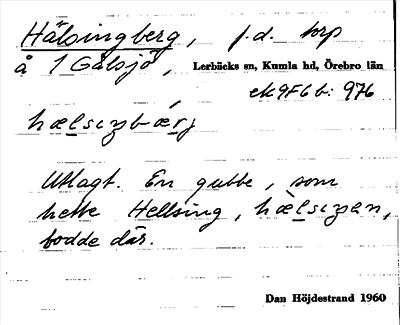 Hälsingberg, f.d. torp
å 1 Gålsjö, Lerbäcks sn, Kumla hd, Örebro län
ek 9F6b: 976
hælsiŋbærj
Utlagt. En gubbe, som
hette Hellsing, hælsiŋen,
bodde där.
Dan Höjdestrand 1960